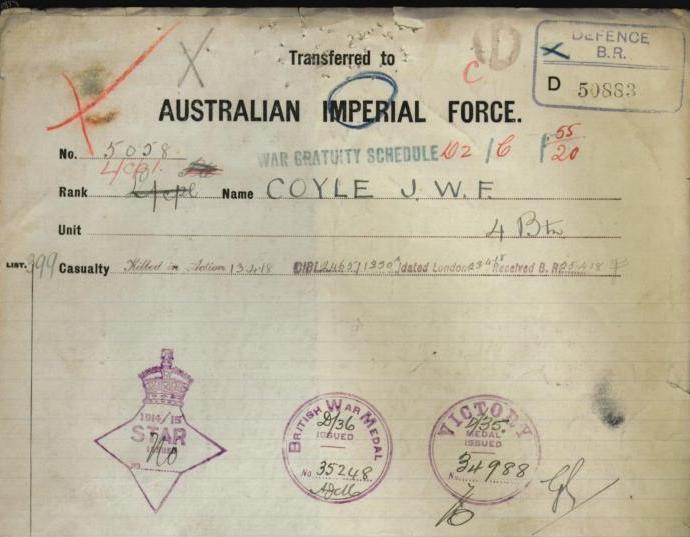 Transferred to
D
DEFENCE
B.R.
D 50883
C
AUSTRALIAN IMPERIAL FORCE.
No. 5058
WAR GRATUITY SCHEDULE D2 / C 55/20
L/Cpl.
Rank L/cpl Name COYLE J. W. F.
Unit 4 Btn
LIST. 399 Casualty Killed in Action 13.4.18 dated London 23.4.18 Received B. R. 25.4.18
1914/15
STAR
ISSUED
No
NO
BRITISH WAR MEDAL
D/36
ISSUED
No 35248
VICTORY
D/35.
MEDAL
ISSUED
No. 34988